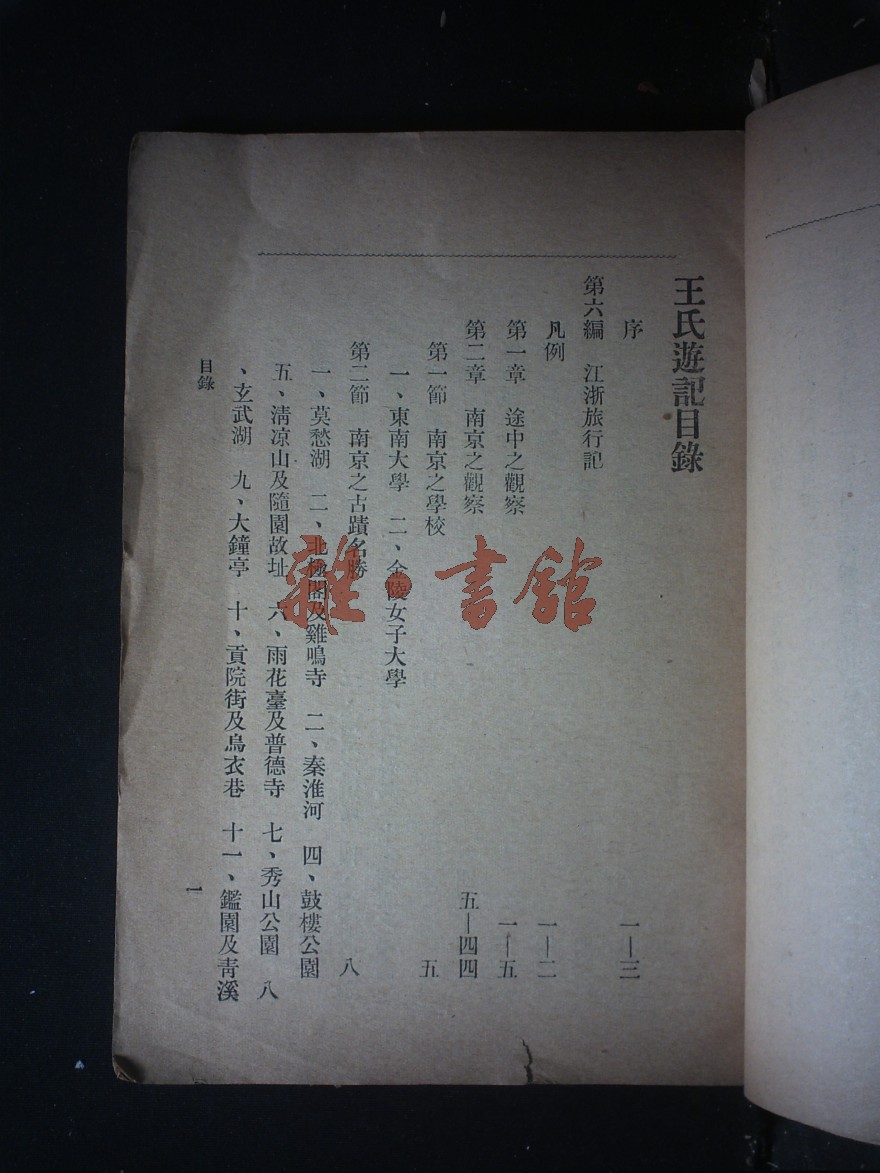 王氏遊記目錄
序 一—三
第六編 江浙旅行記
凡例 一—二
第一章 途中之觀察 一—五
第二章 南京之觀察 五—四四
第一節 南京之學校 五
一、東南大學 二、金陵女子大學
第二節 南京之古蹟名勝 八
一、莫愁湖 二、北極閣及雞鳴寺 二、秦淮河 四、鼓樓公園
五、清凉山及隨園故址 六、雨花臺及普德寺 七、秀山公園 八
、玄武湖 九、大鐘亭 十、貢院街及烏衣巷 十一、鑑園及青溪
目錄
一
雜·書館